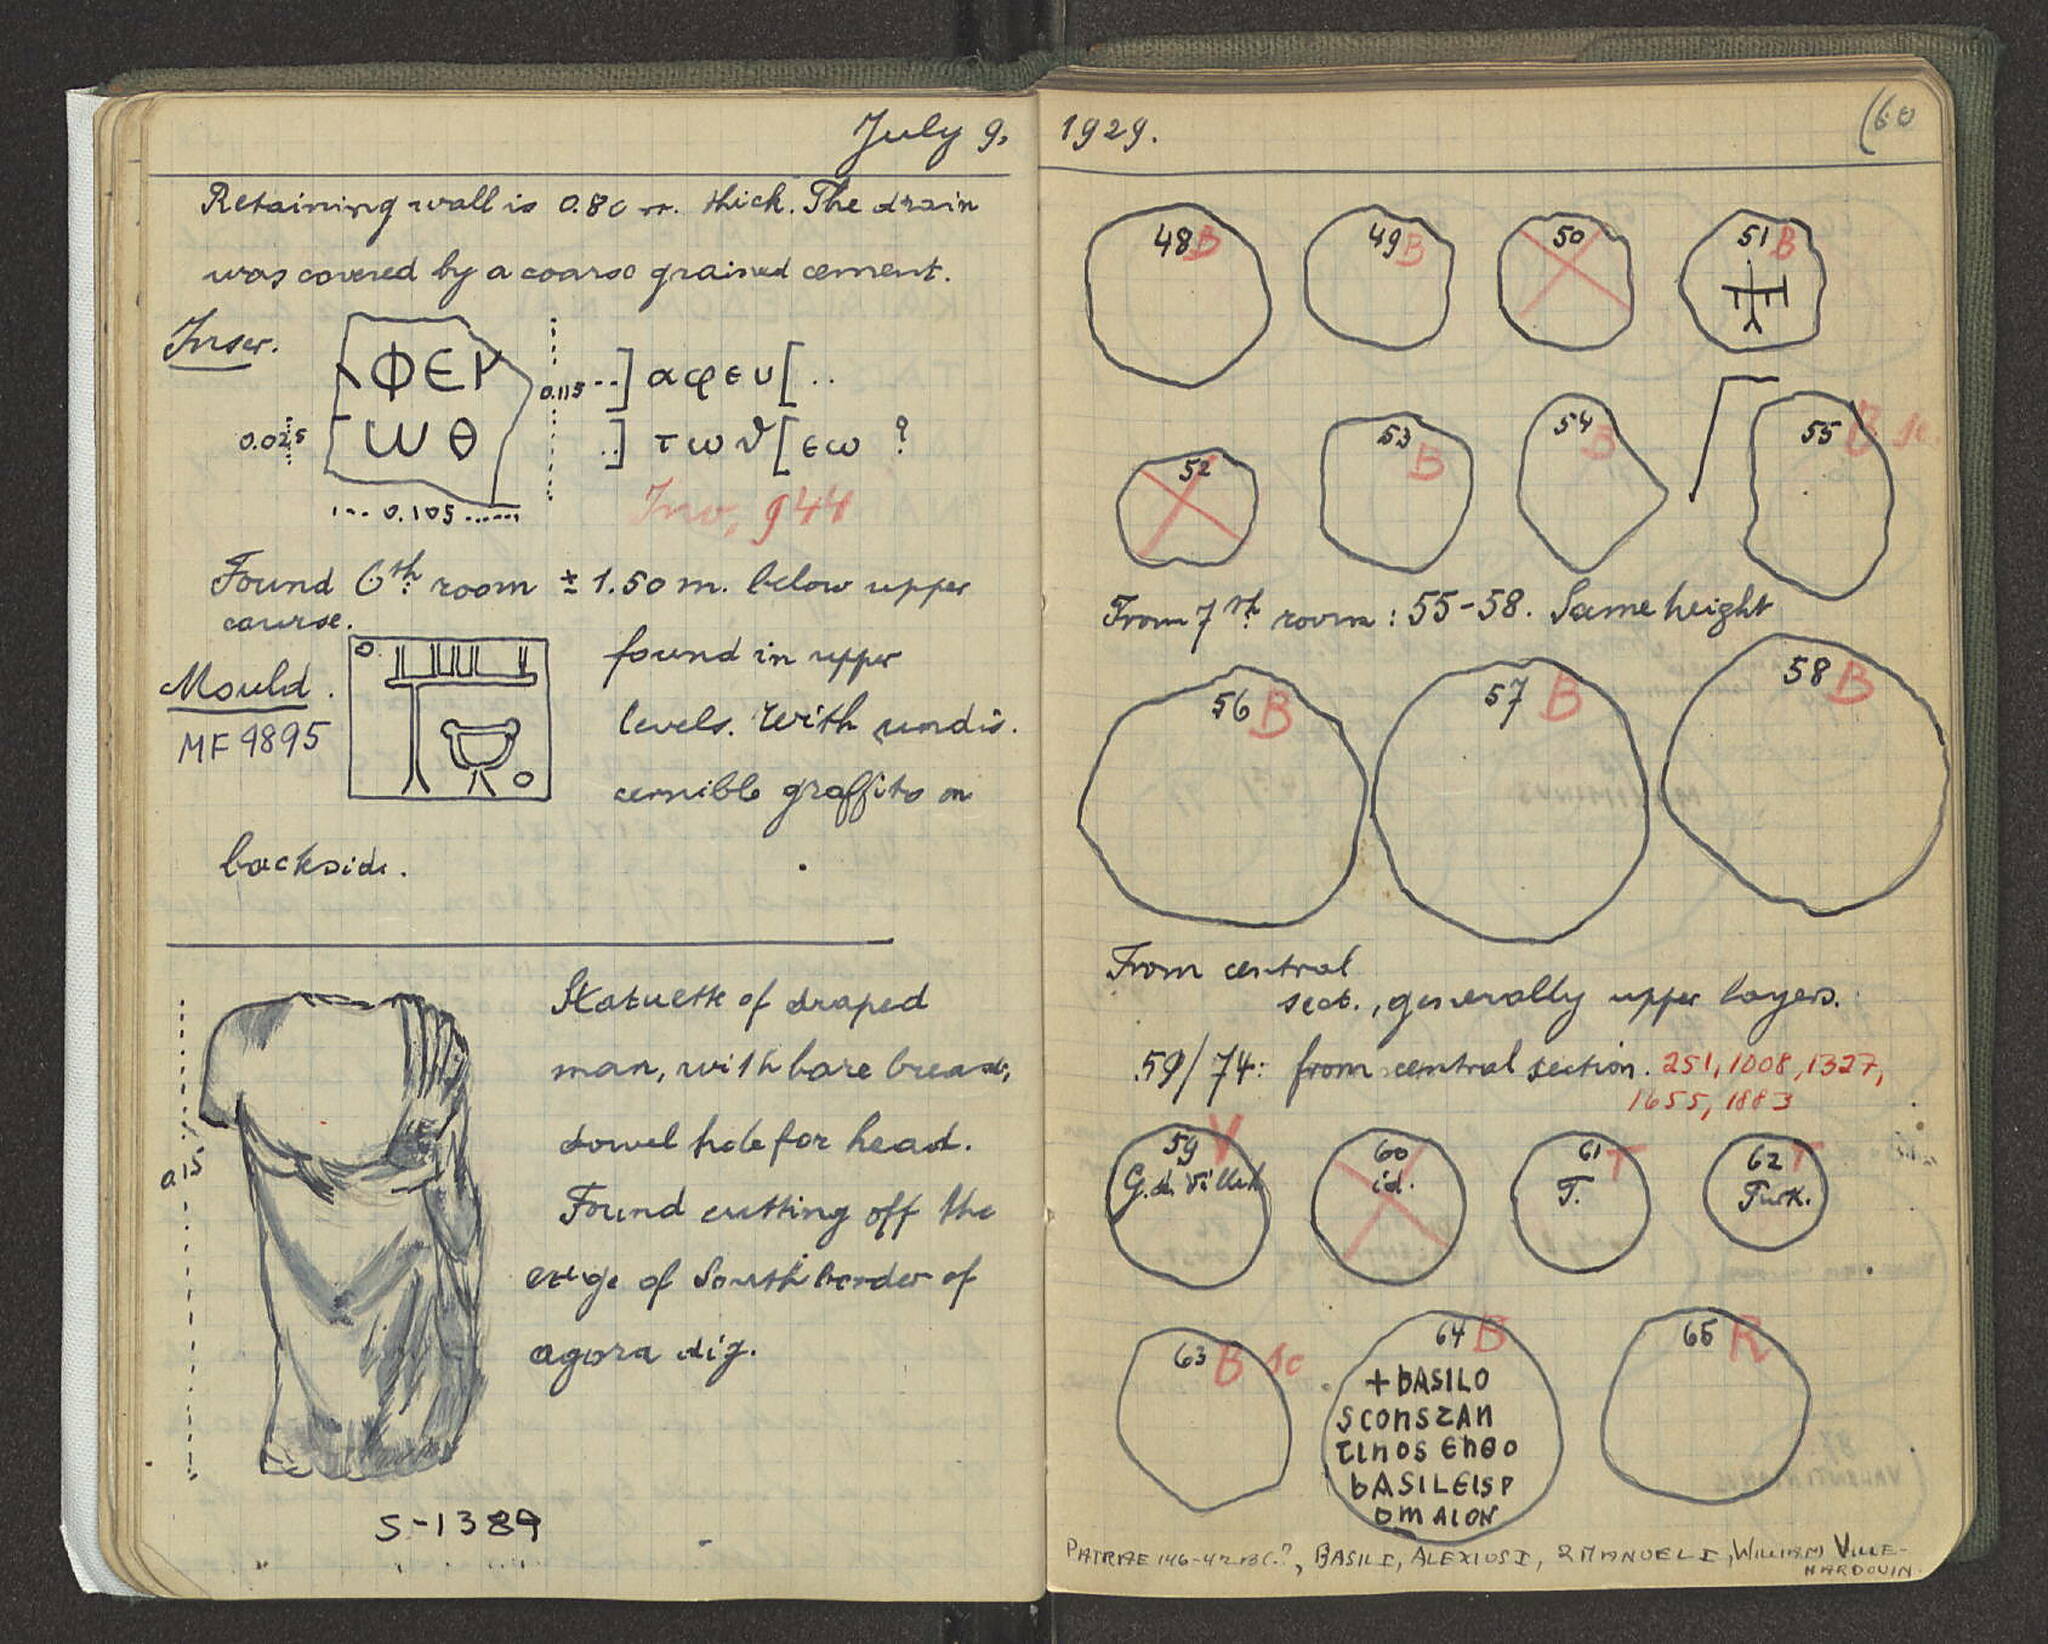 July 9,
Retaining wall is 0.80 m. thick. The drain
was covered by a coarse grained cement.
Inscr.
ΦΕΥ
ωθ
0.115
0.025
0.105
..] αφευ[..
..] τωϑ[εω ?
Inv. 944
Found 6th room ± 1.50 m. below upper
course.
Mould.
MF 9895
found in upper
levels. With undis.
cernible graffito on
backside.
0.15
Statuette of draped
man, with bare breast,
dowel hole for head.
Found cutting off the
edge of South border of
agora dig.
S-1389
1929.
(60
48 B
49 B
50
51 B
52
53 B
54 B
55 B sc.
From 7th room: 55-58. Same height
56 B
57 B
58 B
From central
sect., generally upper layers.
59/74: from central section. 251, 1008, 1327,
1655, 1883
59 V
G. de Villeh
60
id.
61 T
T.
62 T
Turk.
63 B sc
64 B
+bASILO
SCONSTAN
TINOS ENΘO
bASILEISR
OMAION
65 R
PATRAE 146-42 BC.?, BASIL I, ALEXIUS I, 2 MANUEL I, WILLIAM VILLE-
HARDOUIN.